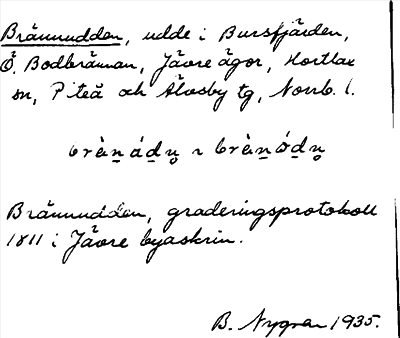 Brännudden, udde i Bursfjärden,
Ö. Bodbrännan, Jävre ägor, Hortlax
sn, Piteå och Älvsby tg, Norrb. l.
brèṉáḏṇ ~ brèṉóḏṇ
Brännudden, graderingsprotokoll
1811 i Jävre byaskrin.
B. Nygren 1935.